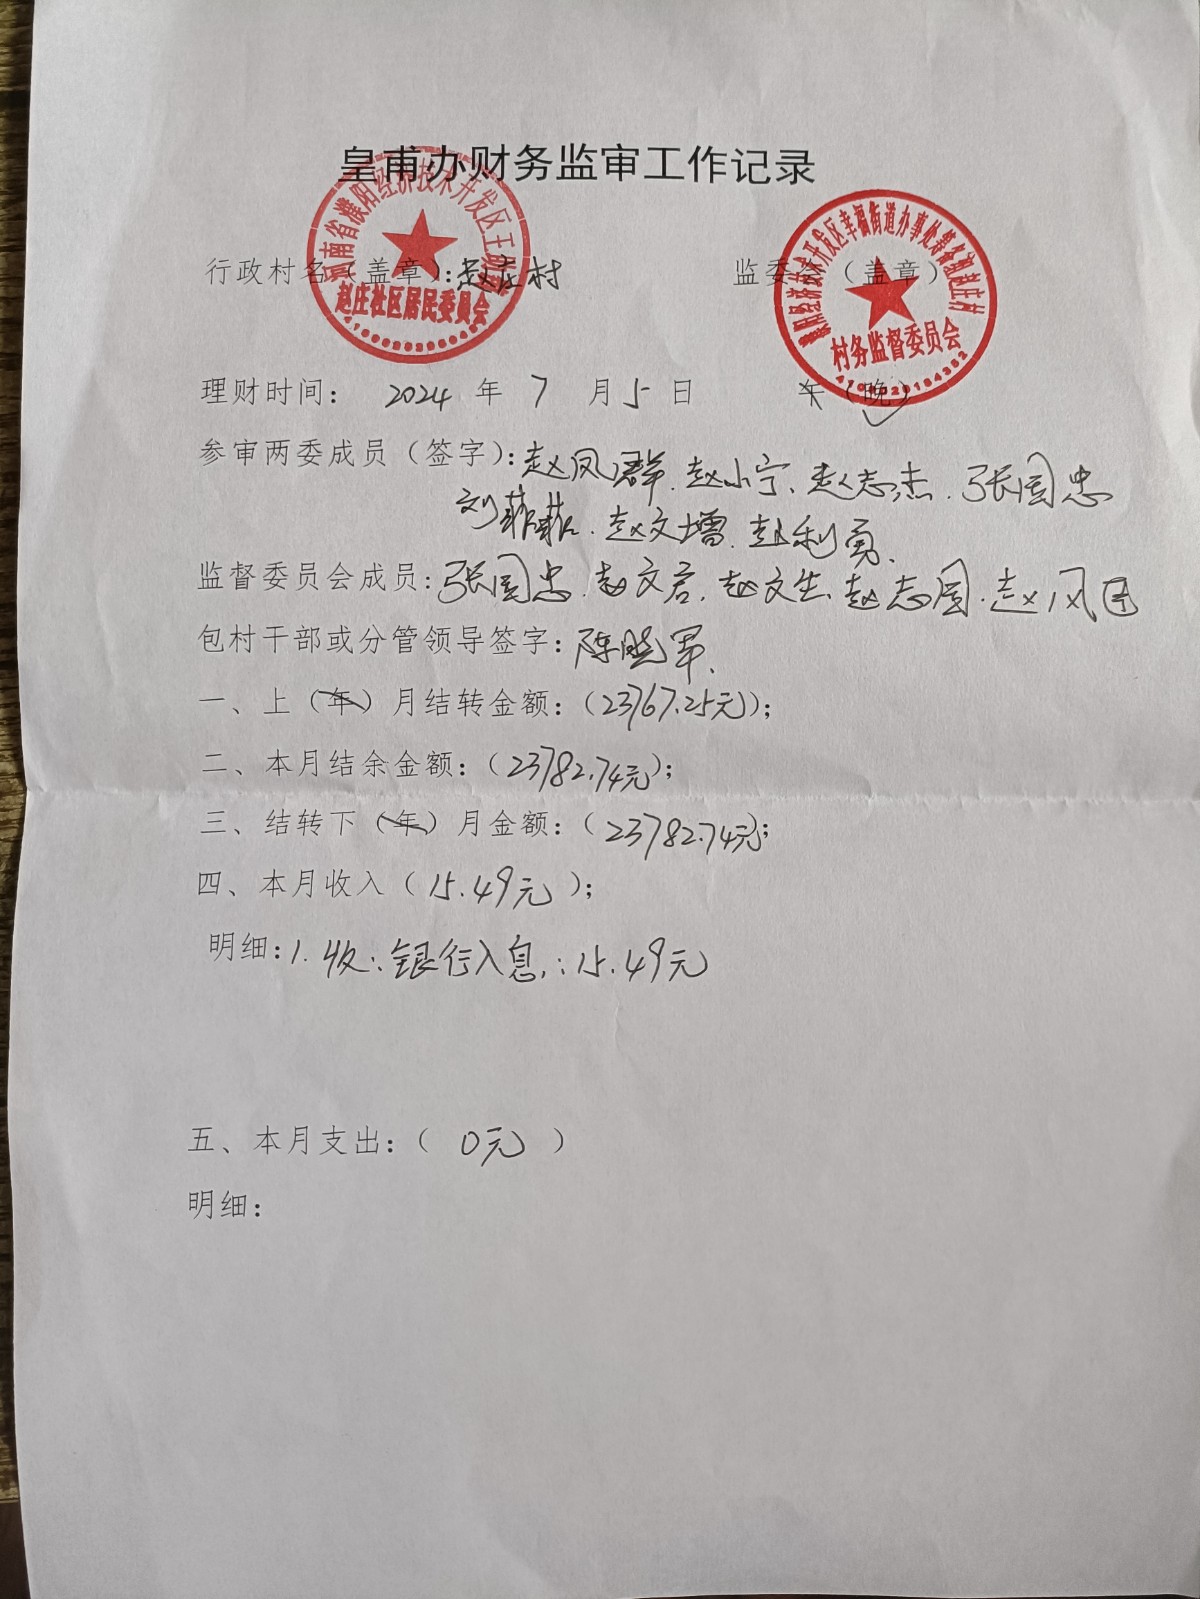 皇甫办财务监审工作记录
河南省濮阳经济技术开发区王助
赵庄社区居民委员会
濮阳经济技术开发区幸福街道办事处筹备组赵庄村
村务监督委员会
行政村名(盖章):赵庄村 监委会(盖章)
理财时间: 2024 年 7 月 5 日 午(晚)
参审两委成员(签字):赵凤群、赵小宁、赵志杰、张国忠
刘菲菲、赵文增、赵利勇、
监督委员会成员:张国忠、赵文君、赵文生、赵志国、赵凤国
包村干部或分管领导签字:陈晓军、
一、上(年)月结转金额:(23767.25元);
二、本月结余金额:(23782.74元);
三、结转下(年)月金额:(23782.74元);
四、本月收入(15.49元);
明细:1.收:银行入息:15.49元
五、本月支出:( 0元 )
明细: